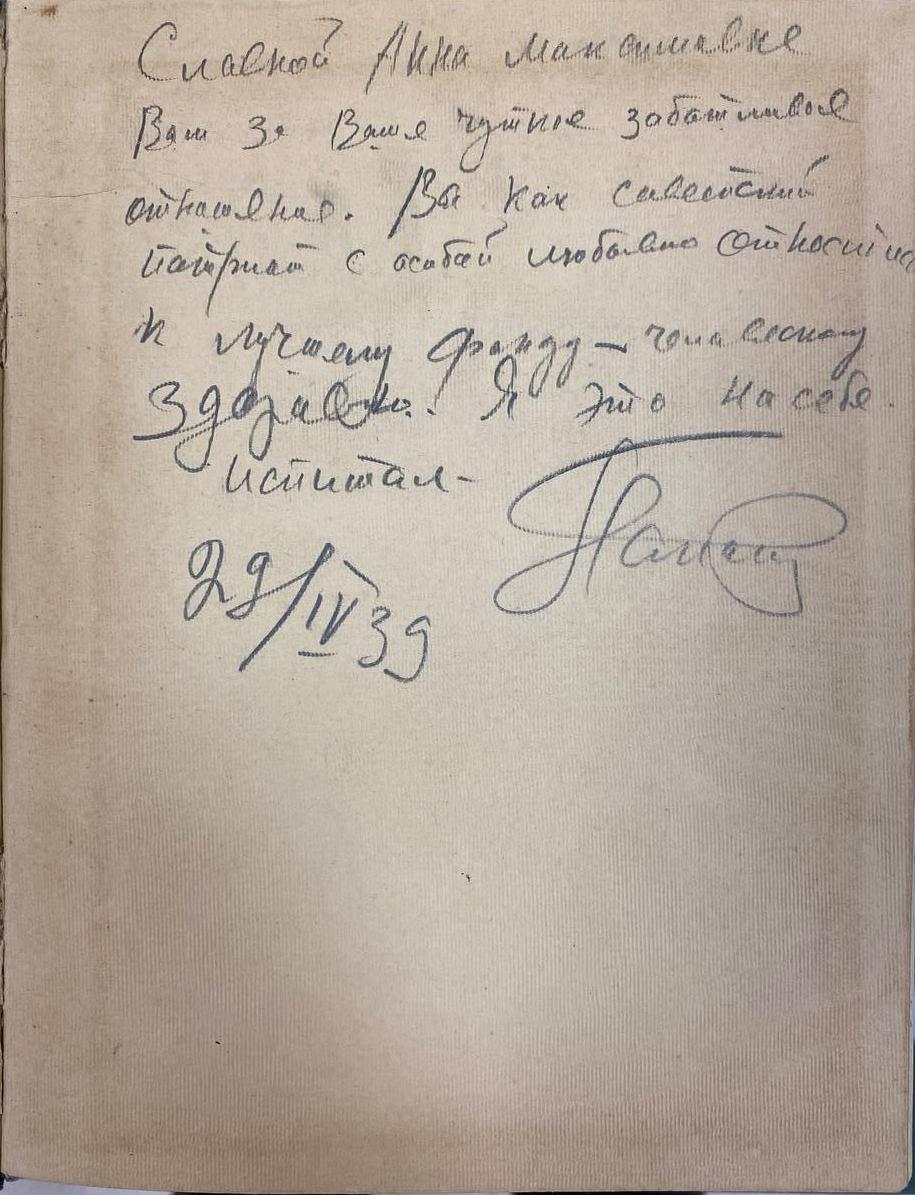 Славной Анна Максимовне
Вам за Ваше чуткое заботливое
отношение. Вы как советский
патриот с особай любовью
к лучшему фонду – человескому
здоровью. Я это на себе.
испитал-
29/IV 39